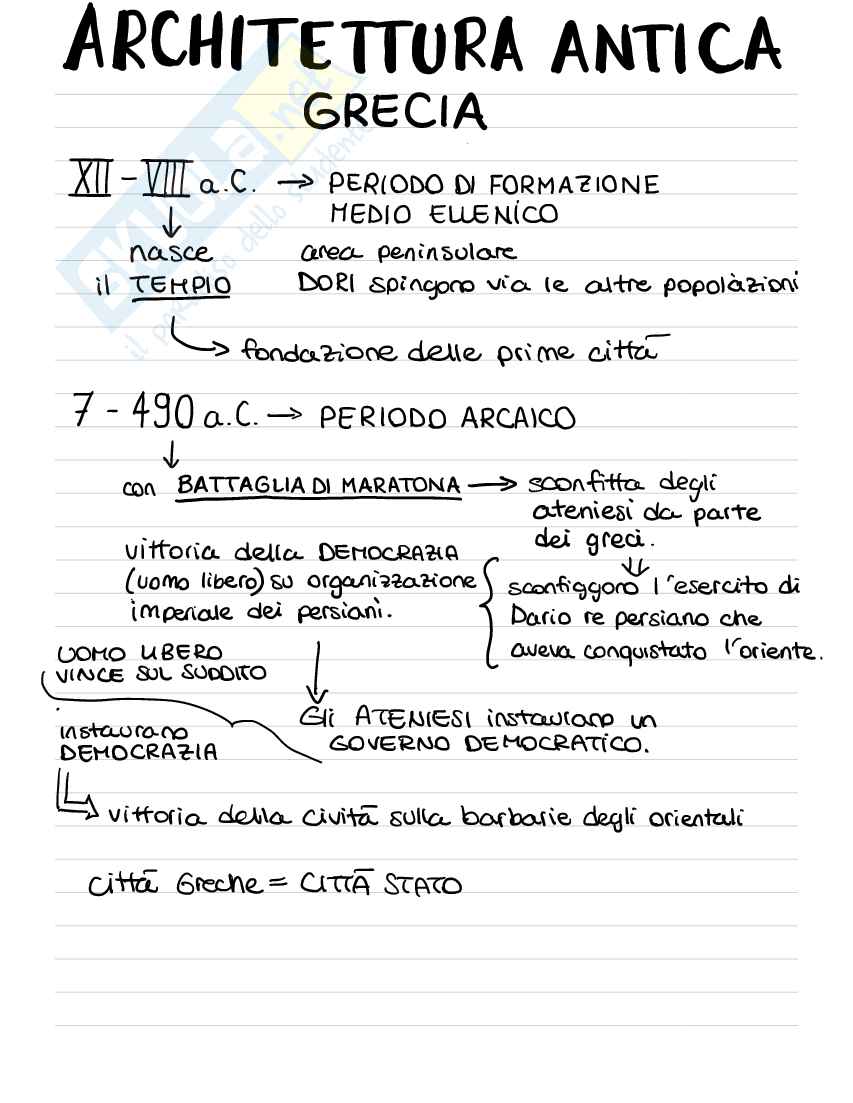 ARCHITETTURA ANTICA
GRECIA
XII - VIII a.C. → PERIODO DI FORMAZIONE
MEDIO ELLENICO
↓
nasce area peninsulare
il TEMPIO DORI spingono via le altre popolàzioni
→ fondazione delle prime città
7 - 490 a.C. → PERIODO ARCAICO
↓
con BATTAGLIA DI MARATONA → sconfitta degli
ateniesi da parte
dei greci.
vittoria della DEMOCRAZIA
(uomo libero) su organizzazione
imperiale dei persiani.
sconfiggono l'esercito di
Dario re persiano che
aveva conquistato l'oriente.
UOMO LIBERO
VINCE SUL SUDDITO
Gli ATENIESI instaurano un
GOVERNO DEMOCRATICO.
instaurano
DEMOCRAZIA
→ vittoria della civiltà sulla barbarie degli orientali
città Greche = CITTÀ STATO
SKUOLA.net
il paradiso dello studente